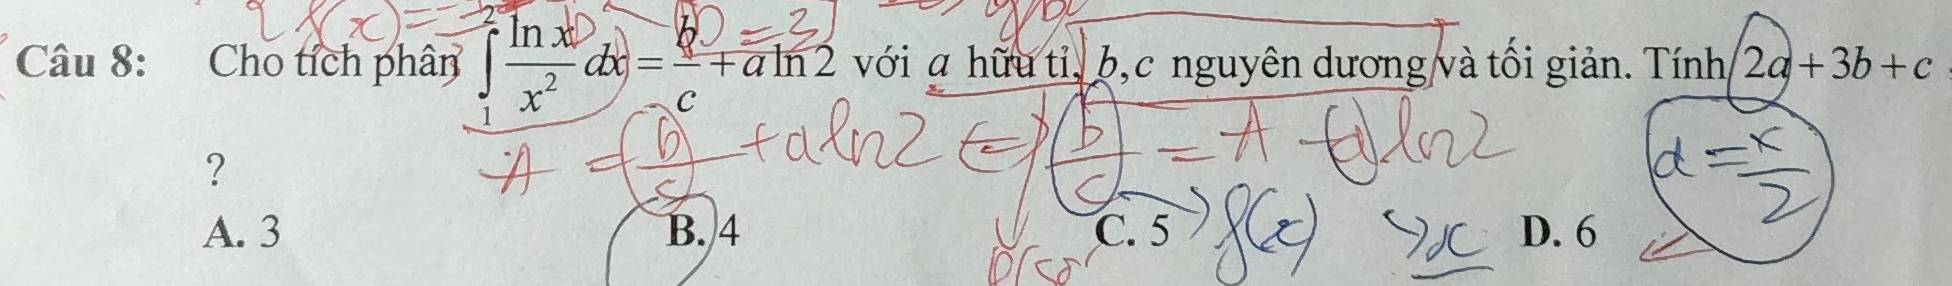 Câu 8: Cho tích phân ∫₁² ln x / x² dx = b/c + a ln 2 với a hữu tỉ, b,c nguyên dương và tối giản. Tính 2a + 3b + c
?
A = b/c + a ln 2 ⇔ b/c = A - a ln 2
a = x/2
A. 3 B. 4 C. 5 D. 6
f(x) x